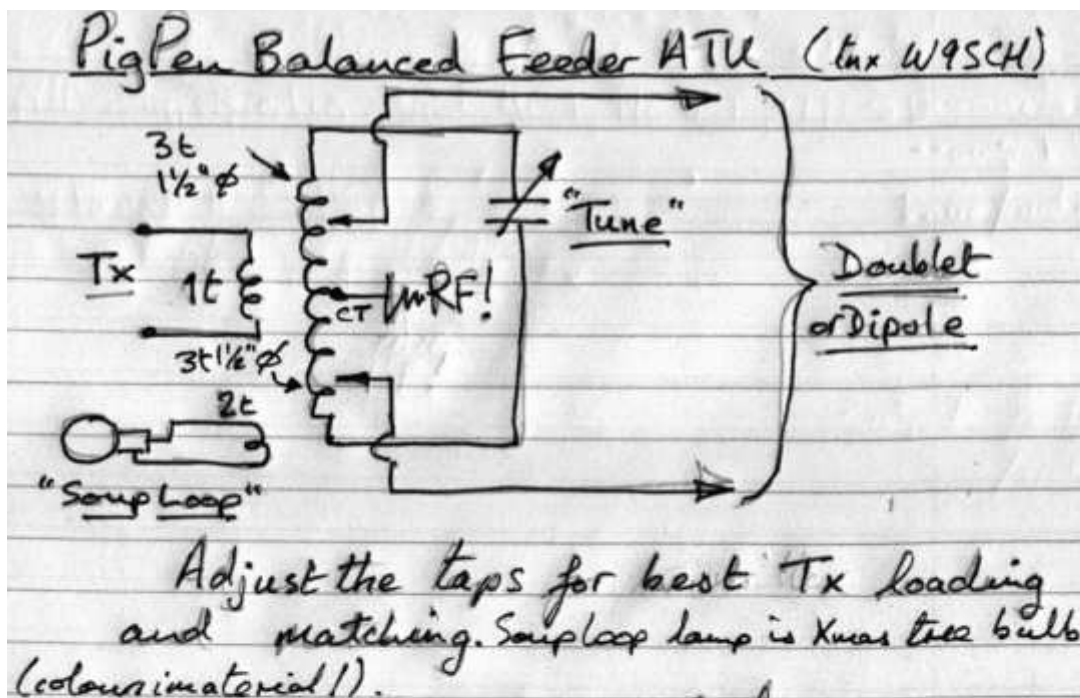 PigPen Balanced Feeder ATU (tnx W9SCH)
3t
1½"ø
"Tune"
Tx
1t
CT
RF!
Doublet
or Dipole
3t1½"ø
2t
"Soup Loop"
Adjust the taps for best Tx loading
and matching. Souploop lamp is Xmas tree bulb
(colour immaterial!).